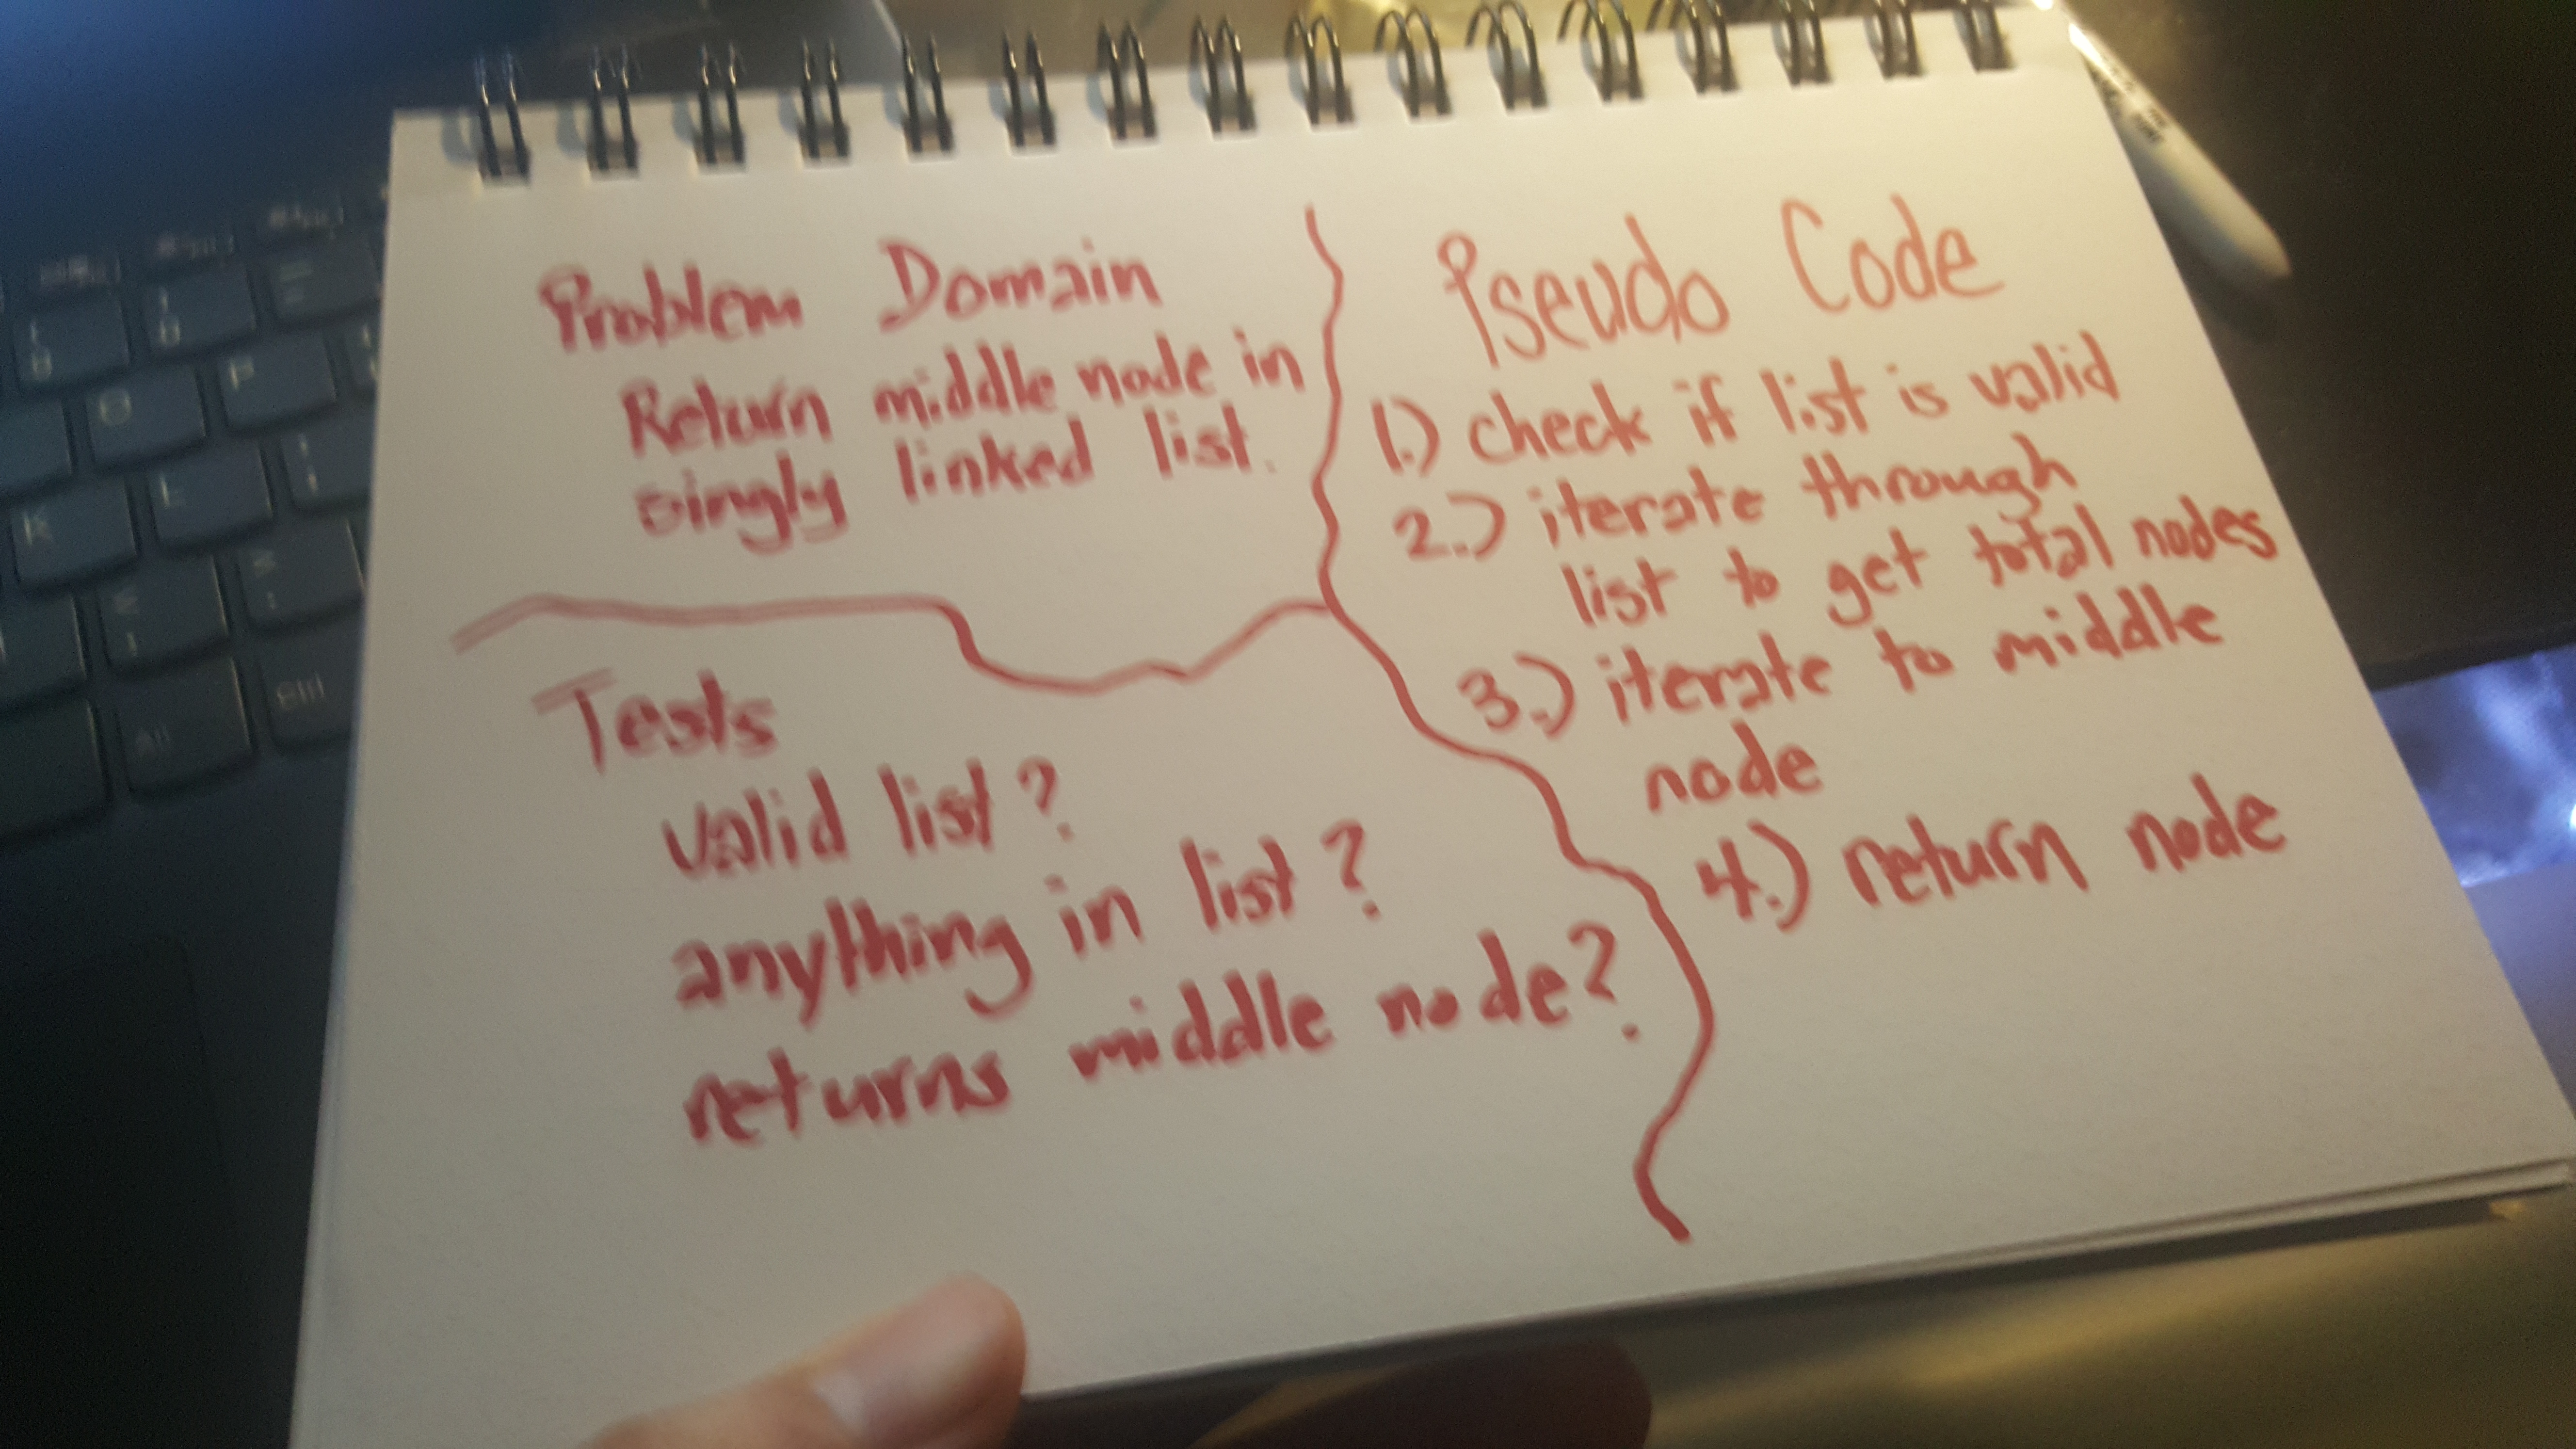 Problem Domain
Return middle node in
singly linked list.
Tests
valid list?
anything in list?
returns middle node?
Pseudo Code
1.) check if list is valid
2.) iterate through
list to get total nodes
3.) iterate to middle
node
4.) return node
O
P
K
L
Alt
Ctrl